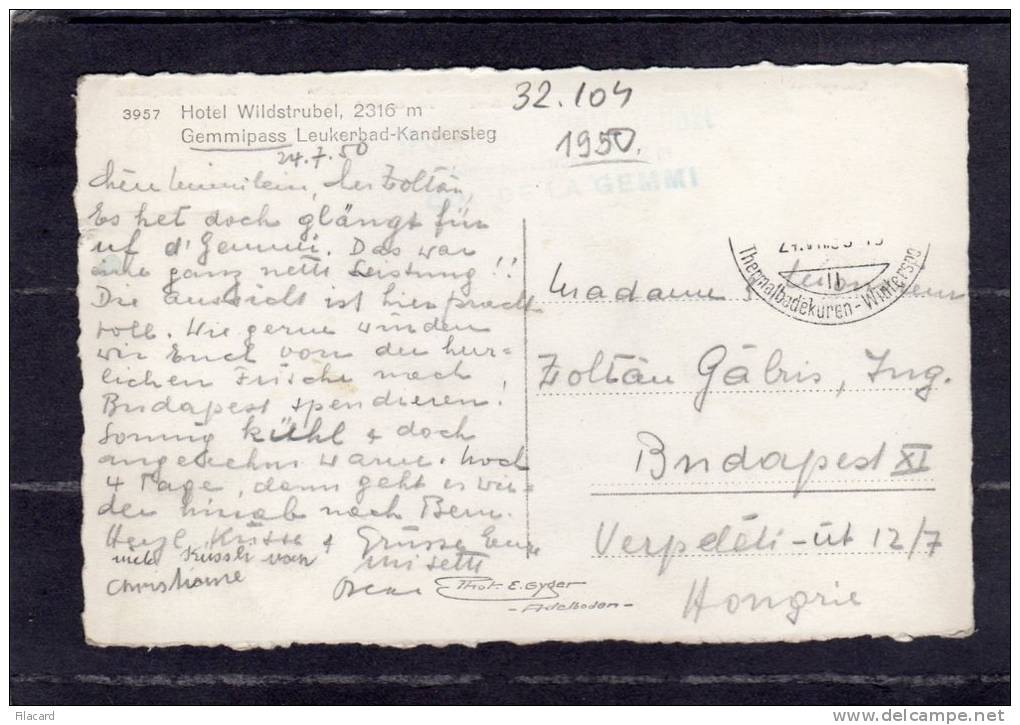 3957 Hotel Wildstrubel, 2316 m
Gemmipass Leukerbad-Kandersteg
32.104
1950.
24.7.50
lieber Zoltán,
Es het doch glängt für
uf d'Gemmi. Das war
eine ganz nette Leistung!!
Die Aussicht ist hier pracht
voll. Wie gerne würden
wir Euch von der herr=
lichen Frische nach
Budapest spendieren!
Sonnig kühl & doch
angenehm warm. Noch
4 Tage, dann geht es wie=
der hinab nach Bern.
Herzl. Küsse & Grüsse Eure
und Küssli von
Christiane
Phot. E. Gyger
- Adelboden -
LA GEMMI
Thermalbadekuren - Winterspo
Madame
Zoltán Gábris, Ing.
Budapest XI
Verpeléti-út 12/7
Hongrie
Filacard
delcampe.net